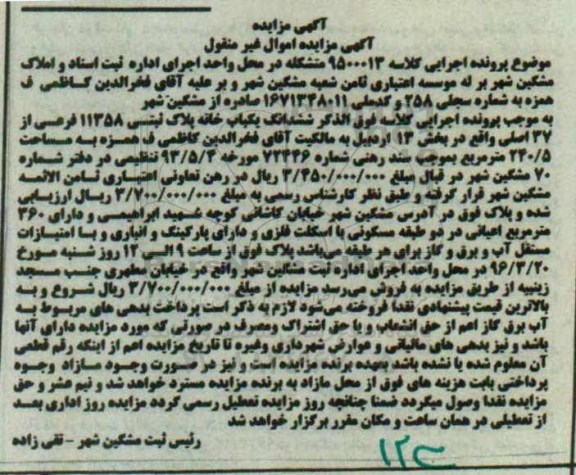 آگهی مزایده
آگهی مزایده اموال غیر منقول
موضوع پرونده اجرایی کلاسه ۹۵۰۰۰۱۳ متشکله در محل واحد اجرای اداره ثبت اسناد و املاک
مشگین شهر بر له موسسه اعتباری ثامن شعبه مشگین شهر و بر علیه آقای فخرالدین کاظمی ف
همزه به شماره سجلی ۲۵۸ و کدملی ۱۶۷۱۳۳۸۰۱۱ صادره از مشگین شهر
به موجب پرونده اجرایی کلاسه فوق الذکر ششدانگ یکباب خانه پلاک ثبتی ۱۱۳۵۸ فرعی از
۳۷ اصلی واقع در بخش ۱۳ اردبیل به مالکیت آقای فخرالدین کاظمی ف همزه به مساحت
۲۳۰/۵ مترمربع بموجب سند رهنی شماره ۷۲۳۴۶ مورخه ۹۳/۵/۴ تنظیمی در دفتر شماره
۷۰ مشگین شهر در قبال مبلغ ۳/۴۵۰/۰۰۰/۰۰۰ ریال در رهن تعاونی اعتباری ثامن الائمه
مشگین شهر قرار گرفته و طبق نظر کارشناس رسمی به مبلغ ۳/۷۰۰/۰۰۰/۰۰۰ ریال ارزیابی
شده و پلاک فوق در آدرس مشگین شهر خیابان کاشانی کوچه شهید ابراهیمی و دارای ۳۶۰
مترمربع اعیانی در دو طبقه مسکونی با اسکلت فلزی و دارای پارکینگ و انباری و با امتیازات
مستقل آب و برق و گاز برای هر طبقه می‌باشد پلاک فوق از ساعت ۹ الی ۱۲ روز شنبه مورخ
۹۶/۳/۲۰ در محل واحد اجرای اداره ثبت مشگین شهر واقع در خیابان مطهری جنب مسجد
زینبیه از طریق مزایده به فروش می‌رسد مزایده از مبلغ ۳/۷۰۰/۰۰۰/۰۰۰ ریال شروع و به
بالاترین قیمت پیشنهادی نقدا فروخته می‌شود لازم به ذکر است پرداخت بدهی های مربوط به
آب برق گاز اعم از حق انشعاب و یا حق اشتراک ومصرف در صورتی که مورد مزایده دارای آنها
باشد و نیز بدهی های مالیاتی و عوارض شهرداری وغیره تا تاریخ مزایده اعم از اینکه رقم قطعی
آن معلوم شده یا نشده باشد بعهده برنده مزایده است و نیز در صورت وجود مازاد وجوه
پرداختی بابت هزینه های فوق از محل مازاد به برنده مزایده مسترد خواهد شد و نیم عشر و حق
مزایده نقدا وصول میگردد ضمنا چنانچه روز مزایده تعطیل رسمی گردد مزایده روز اداری بعد
از تعطیلی در همان ساعت و مکان مقرر برگزار خواهد شد
رئیس ثبت مشگین شهر - تقی زاده